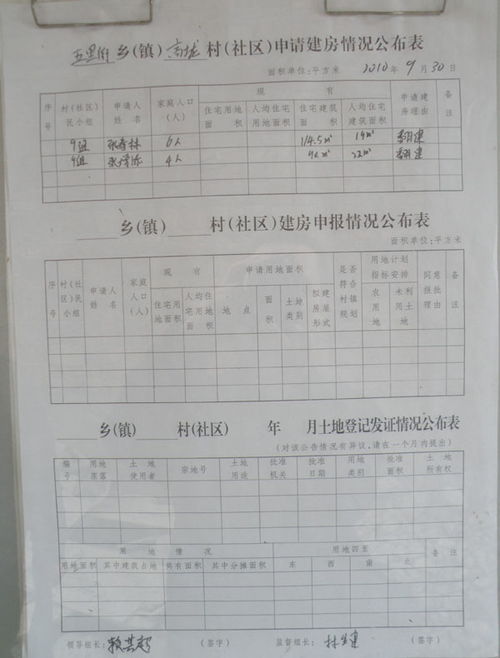 五里街乡(镇) 高垅村(社区)申请建房情况公布表
面积单位:平方米 2010年9月30日
序号 村(社区)民小组 申请人姓名 家庭人口(人) 现有 申请建房理由 备注
住宅用地面积 人均住宅用地面积 住宅建筑面积 人均住宅建筑面积
9组 张春林 6人 114.5㎡ 19㎡ 翻建
9组 4人 22㎡ 翻建
乡(镇) 村(社区)建房申报情况公布表
面积单位:平方米
序号 村(社区)民小组 申请人姓名 家庭人口(人) 现有 申请用地面积 是否符合村镇规划 用地计划指标安排 同意报批理由 备注
住宅用地面积 人均住宅用地面积 地点 面积 土地类别 拟建房屋形式 农用地 未利用土地
乡(镇) 村(社区) 年 月土地登记发证情况公布表
(对该公告情况有异议,请在一个月内提出)
编号 用地座落 土地使用者 宗地号 土地用途 批准机关 批准日期 用地类别 批准面积 土地所有权
用地情况 用地四至 备注
用地面积 其中建筑占地 共有面积 其中分摊面积 东 西 南 北
领导组长: (签字) 监督组长: (签字)